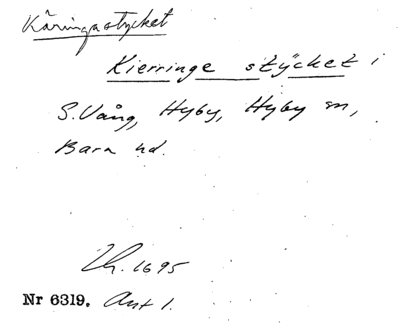 Käringastycket
Kierringe stÿcket i
S. Vång, Hyby, Hyby sn,
Bara hd.
Lh. 1695
Nr 6319. Ant 1.